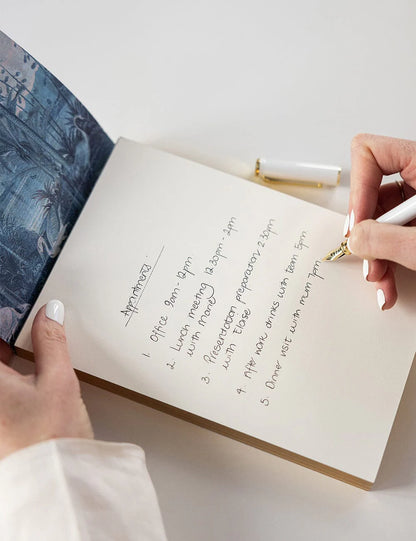 Appointments:
1. Office 9am - 12pm
2. Lunch meeting 12:30pm - 2pm
with
3. Presentation preparation 2:30pm
with Elose
4. After work drinks with team 5pm
5. Dinner visit with mum 7pm